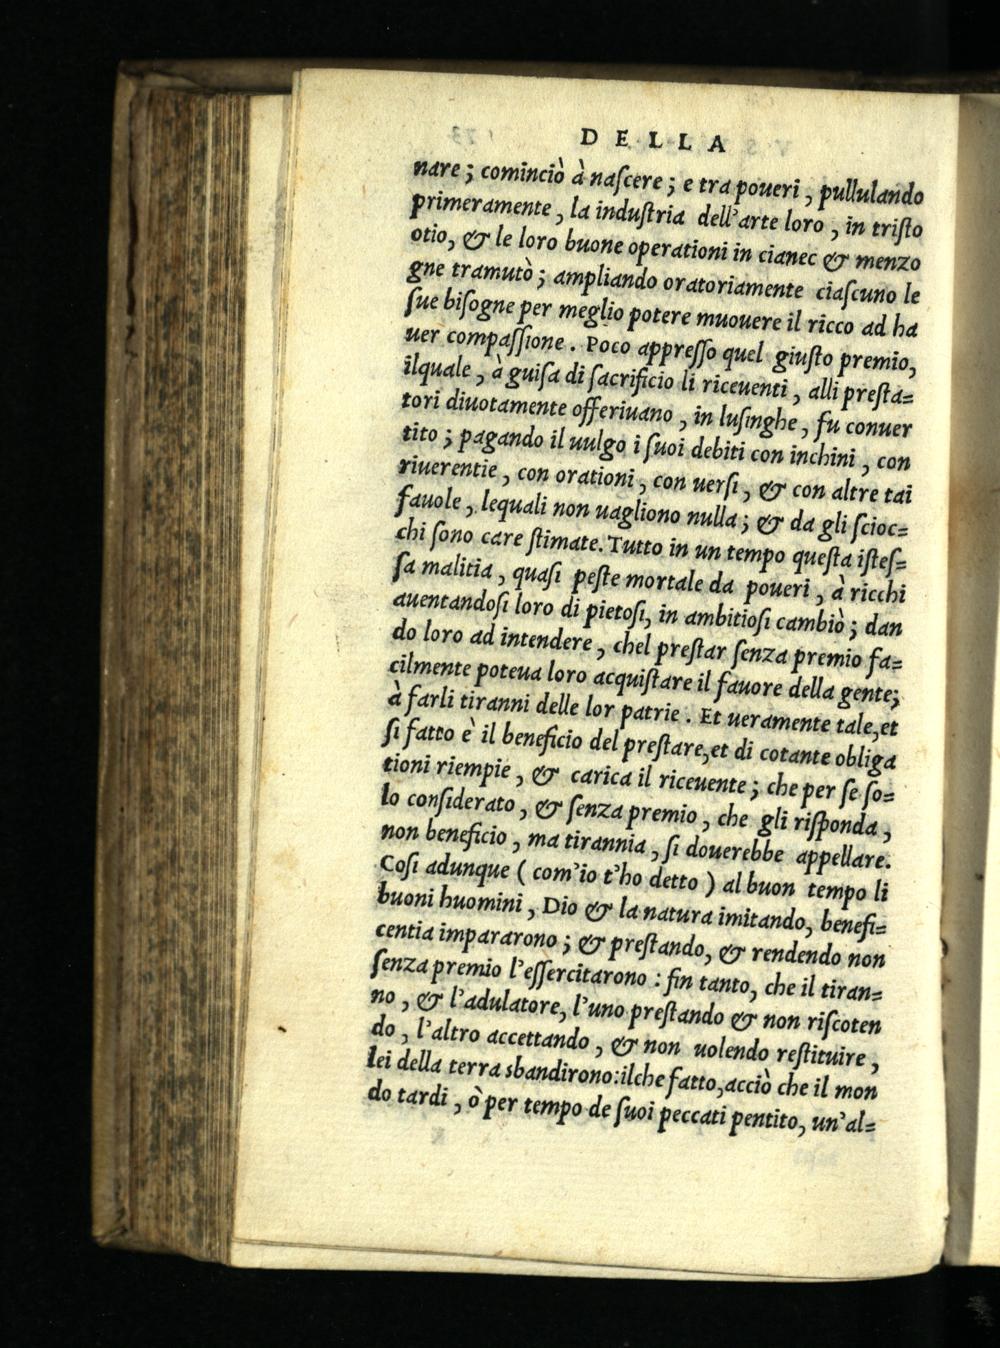 DELLA
nare; cominciò à naſcere; e tra poueri, pullulando
primeramente, la induſtria dell'arte loro, in triſto
otio, & le loro buone operationi in cianec & menzo
gne tramutò; ampliando oratoriamente ciaſcuno le
ſue biſogne per meglio potere muouere il ricco ad ha
uer compaſſione. Poco appreſſo quel giuſto premio,
ilquale, à guiſa di ſacrificio li riceuenti, alli preſta=
tori diuotamente offeriuano, in luſinghe, fu conuer
tito; pagando il uulgo i ſuoi debiti con inchini, con
riuerentie, con orationi, con uerſi, & con altre tai
fauole, lequali non uagliono nulla; & da gli ſcioc=
chi ſono care ſtimate. Tutto in un tempo queſta iſteſ=
ſa malitia, quaſi peſte mortale da poueri, à ricchi
auentandoſi loro di pietoſi, in ambitioſi cambiò; dan
do loro ad intendere, chel preſtar ſenza premio fa=
cilmente poteua loro acquiſtare il fauore della gente;
à farli tiranni delle lor patrie. Et ueramente tale, et
ſi fatto è il beneficio del preſtare, et di cotante obliga
tioni riempie, & carica il riceuente; che per ſe ſo=
lo conſiderato, & ſenza premio, che gli riſponda,
non beneficio, ma tirannia, ſi douerebbe appellare.
Coſi adunque (com'io t'ho detto) al buon tempo li
buoni huomini, Dio & la natura imitando, benefi=
centia impararono; & preſtando, & rendendo non
ſenza premio l'eſſercitarono: fin tanto, che il tiran=
no, & l'adulatore, l'uno preſtando & non riſcoten
do, l'altro accettando, & non uolendo reſtituire,
lei della terra sbandirono: ilche fatto, acciò che il mon
do tardi, ò per tempo de ſuoi peccati pentito, un'al=